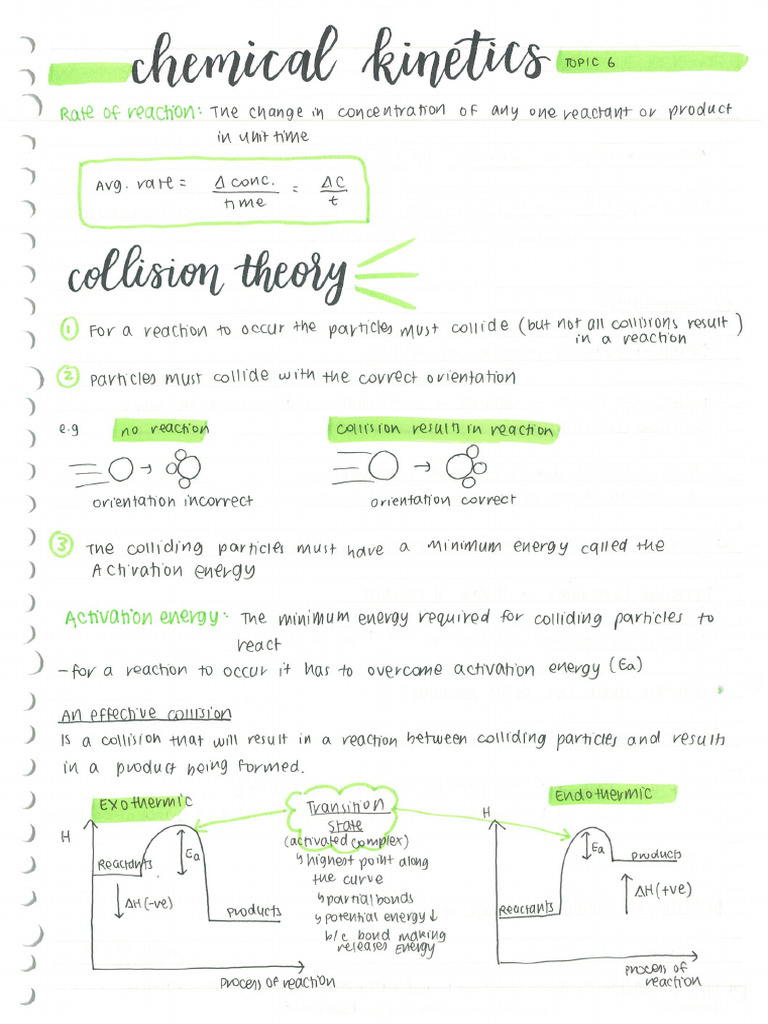 chemical kinetics TOPIC 6
Rate of reaction: The change in concentration of any one reactant or product
in unit time
Avg. rate = Δ conc. / time = ΔC / t
collision theory
① For a reaction to occur the particles must collide (but not all collisions result)
in a reaction
② Particles must collide with the correct orientation
e.g no reaction collision results in reaction
orientation incorrect orientation correct
③ The colliding particles must have a minimum energy called the
Activation energy
Activation energy: The minimum energy required for colliding particles to
react
-for a reaction to occur it has to overcome activation energy (Ea)
An effective collision
Is a collision that will result in a reaction between colliding particles and results
in a product being formed.
Exothermic
H
Reactants
Ea
ΔH(-ve)
Products
Process of reaction
Transition
state
(activated complex)
↳ highest point along
the curve
↳ partial bonds
↳ potential energy ↓
b/c bond making
releases energy
Endothermic
H
Reactants
Ea
products
ΔH(+ve)
process of
reaction